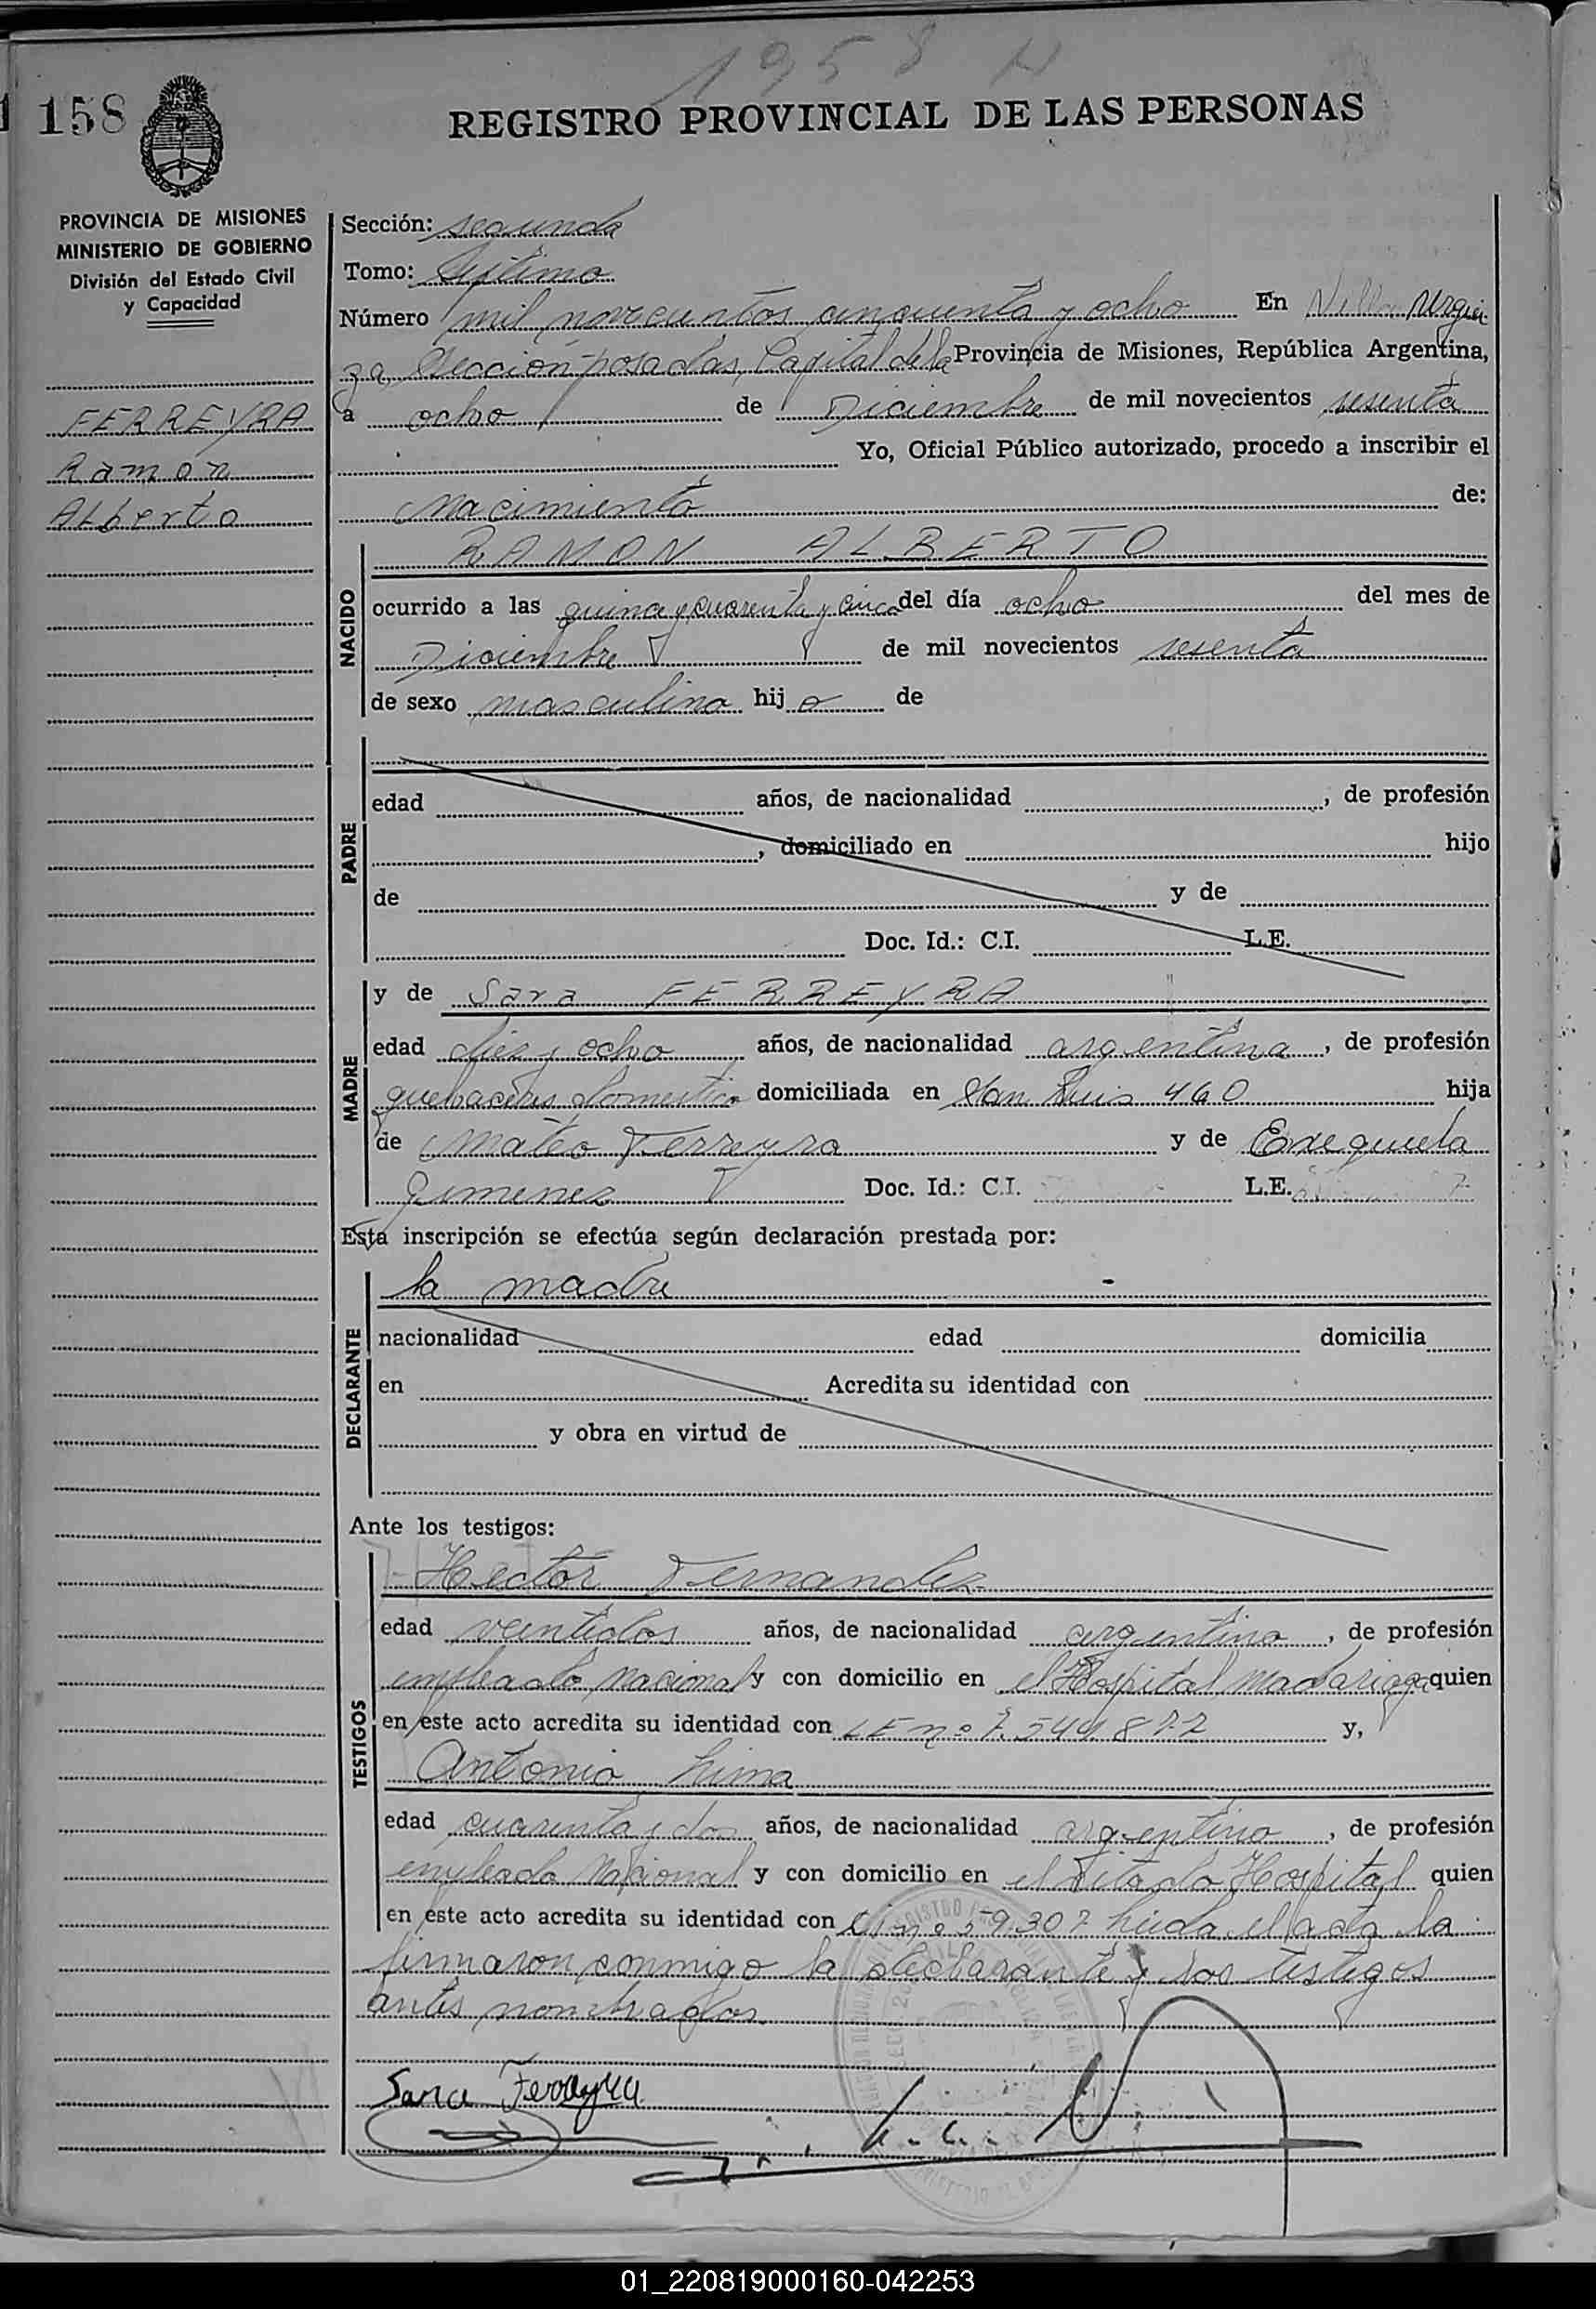 1958 N
158
REGISTRO PROVINCIAL DE LAS PERSONAS
PROVINCIA DE MISIONES
MINISTERIO DE GOBIERNO
División del Estado Civil
y Capacidad
FERREYRA
Ramon
Alberto
Sección: segunda
Tomo: Septimo
Número mil novecuentos cincuenta y ocho En Villa Urqui
za Sección posadas, Capital de la Provincia de Misiones, República Argentina,
a ocho de Diciembre de mil novecientos sesenta
Yo, Oficial Público autorizado, procedo a inscribir el
Nacimiento de:
NACIDO
RAMON ALBERTO
ocurrido a las quince y cuarenta y cinco del día ocho del mes de
Diciembre de mil novecientos sesenta
de sexo masculino hijo de
PADRE
edad años, de nacionalidad , de profesión
, domiciliado en hijo
de y de
Doc. Id.: C.I. L.E.
MADRE
y de Sara FERREYRA
edad diez y ocho años, de nacionalidad argentina, de profesión
quehaceres domestico domiciliada en San Luis 460 hija
de Mateo Ferreyra y de Exequiela
Gimenez Doc. Id.: C.I. L.E.
Esta inscripción se efectúa según declaración prestada por:
DECLARANTE
la madre
nacionalidad edad domicilia
en Acredita su identidad con
y obra en virtud de
Ante los testigos:
TESTIGOS
Hector Fernandez
edad veintidos años, de nacionalidad argentino, de profesión
empleado Nacional y con domicilio en el Hospital Madariaga quien
en este acto acredita su identidad con LE nº 7.549.877 y,
Antonio Lima
edad cuarenta y dos años, de nacionalidad argentino, de profesión
empleado Nacional y con domicilio en el citado Hospital quien
en este acto acredita su identidad con Ci nº 59.307 Leida el acta la
firmaron conmigo la declarante y los testigos
antes nombrados.
Sara Ferreyra
01_220819000160-042253